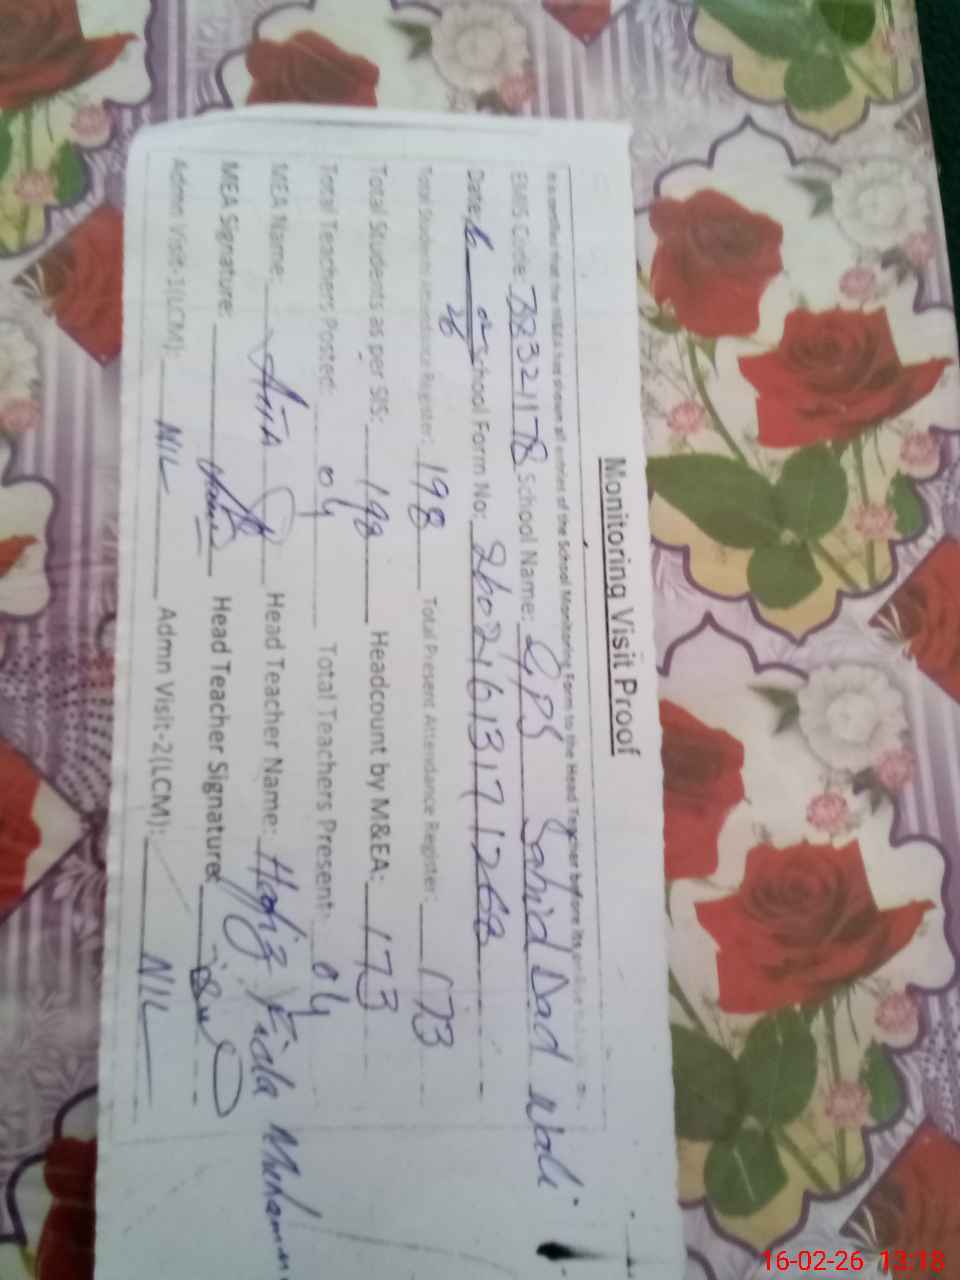 Monitoring Visit Proof
It is certified that the MEA has shown all entries of the School Monitoring Form to the Head Teacher before its
EMIS Code: 32324178 School Name: GPS Sahid Dad Wali
Date: 16 02 26 School Form No: 26021613171268
Total Students Attendance Register: 198 Total Present Attendance Register: 173
Total Students as per SIS: 198 Headcount by M&EA: 173
Total Teachers Posted: 04 Total Teachers Present: 04
MEA Name: Head Teacher Name: Hafiz Fida Muhamm
MEA Signature: Head Teacher Signature:
Admn Visit-1(LCM): NIL Admn Visit-2(LCM): NIL
16-02-26 13:18